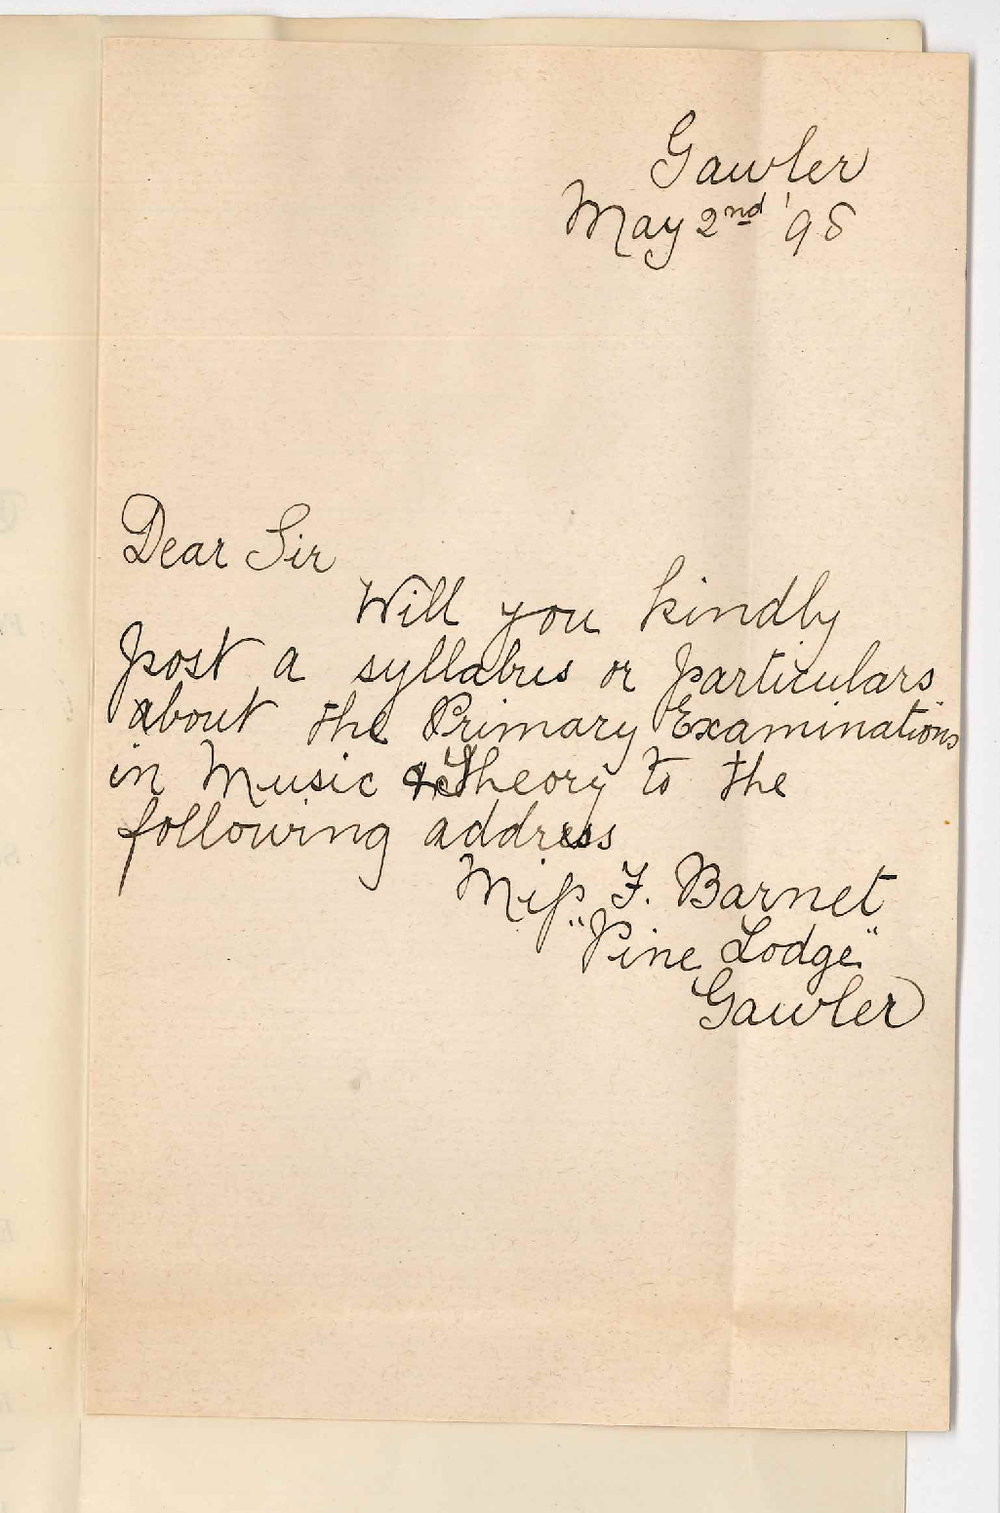 Gawler
May 2nd '98
Dear Sir
Will you kindly
post a syllabus or particulars
about the Primary Examinations
in Music & Theory to the
following address
Miss F. Barnet
"Pine Lodge"
Gawler